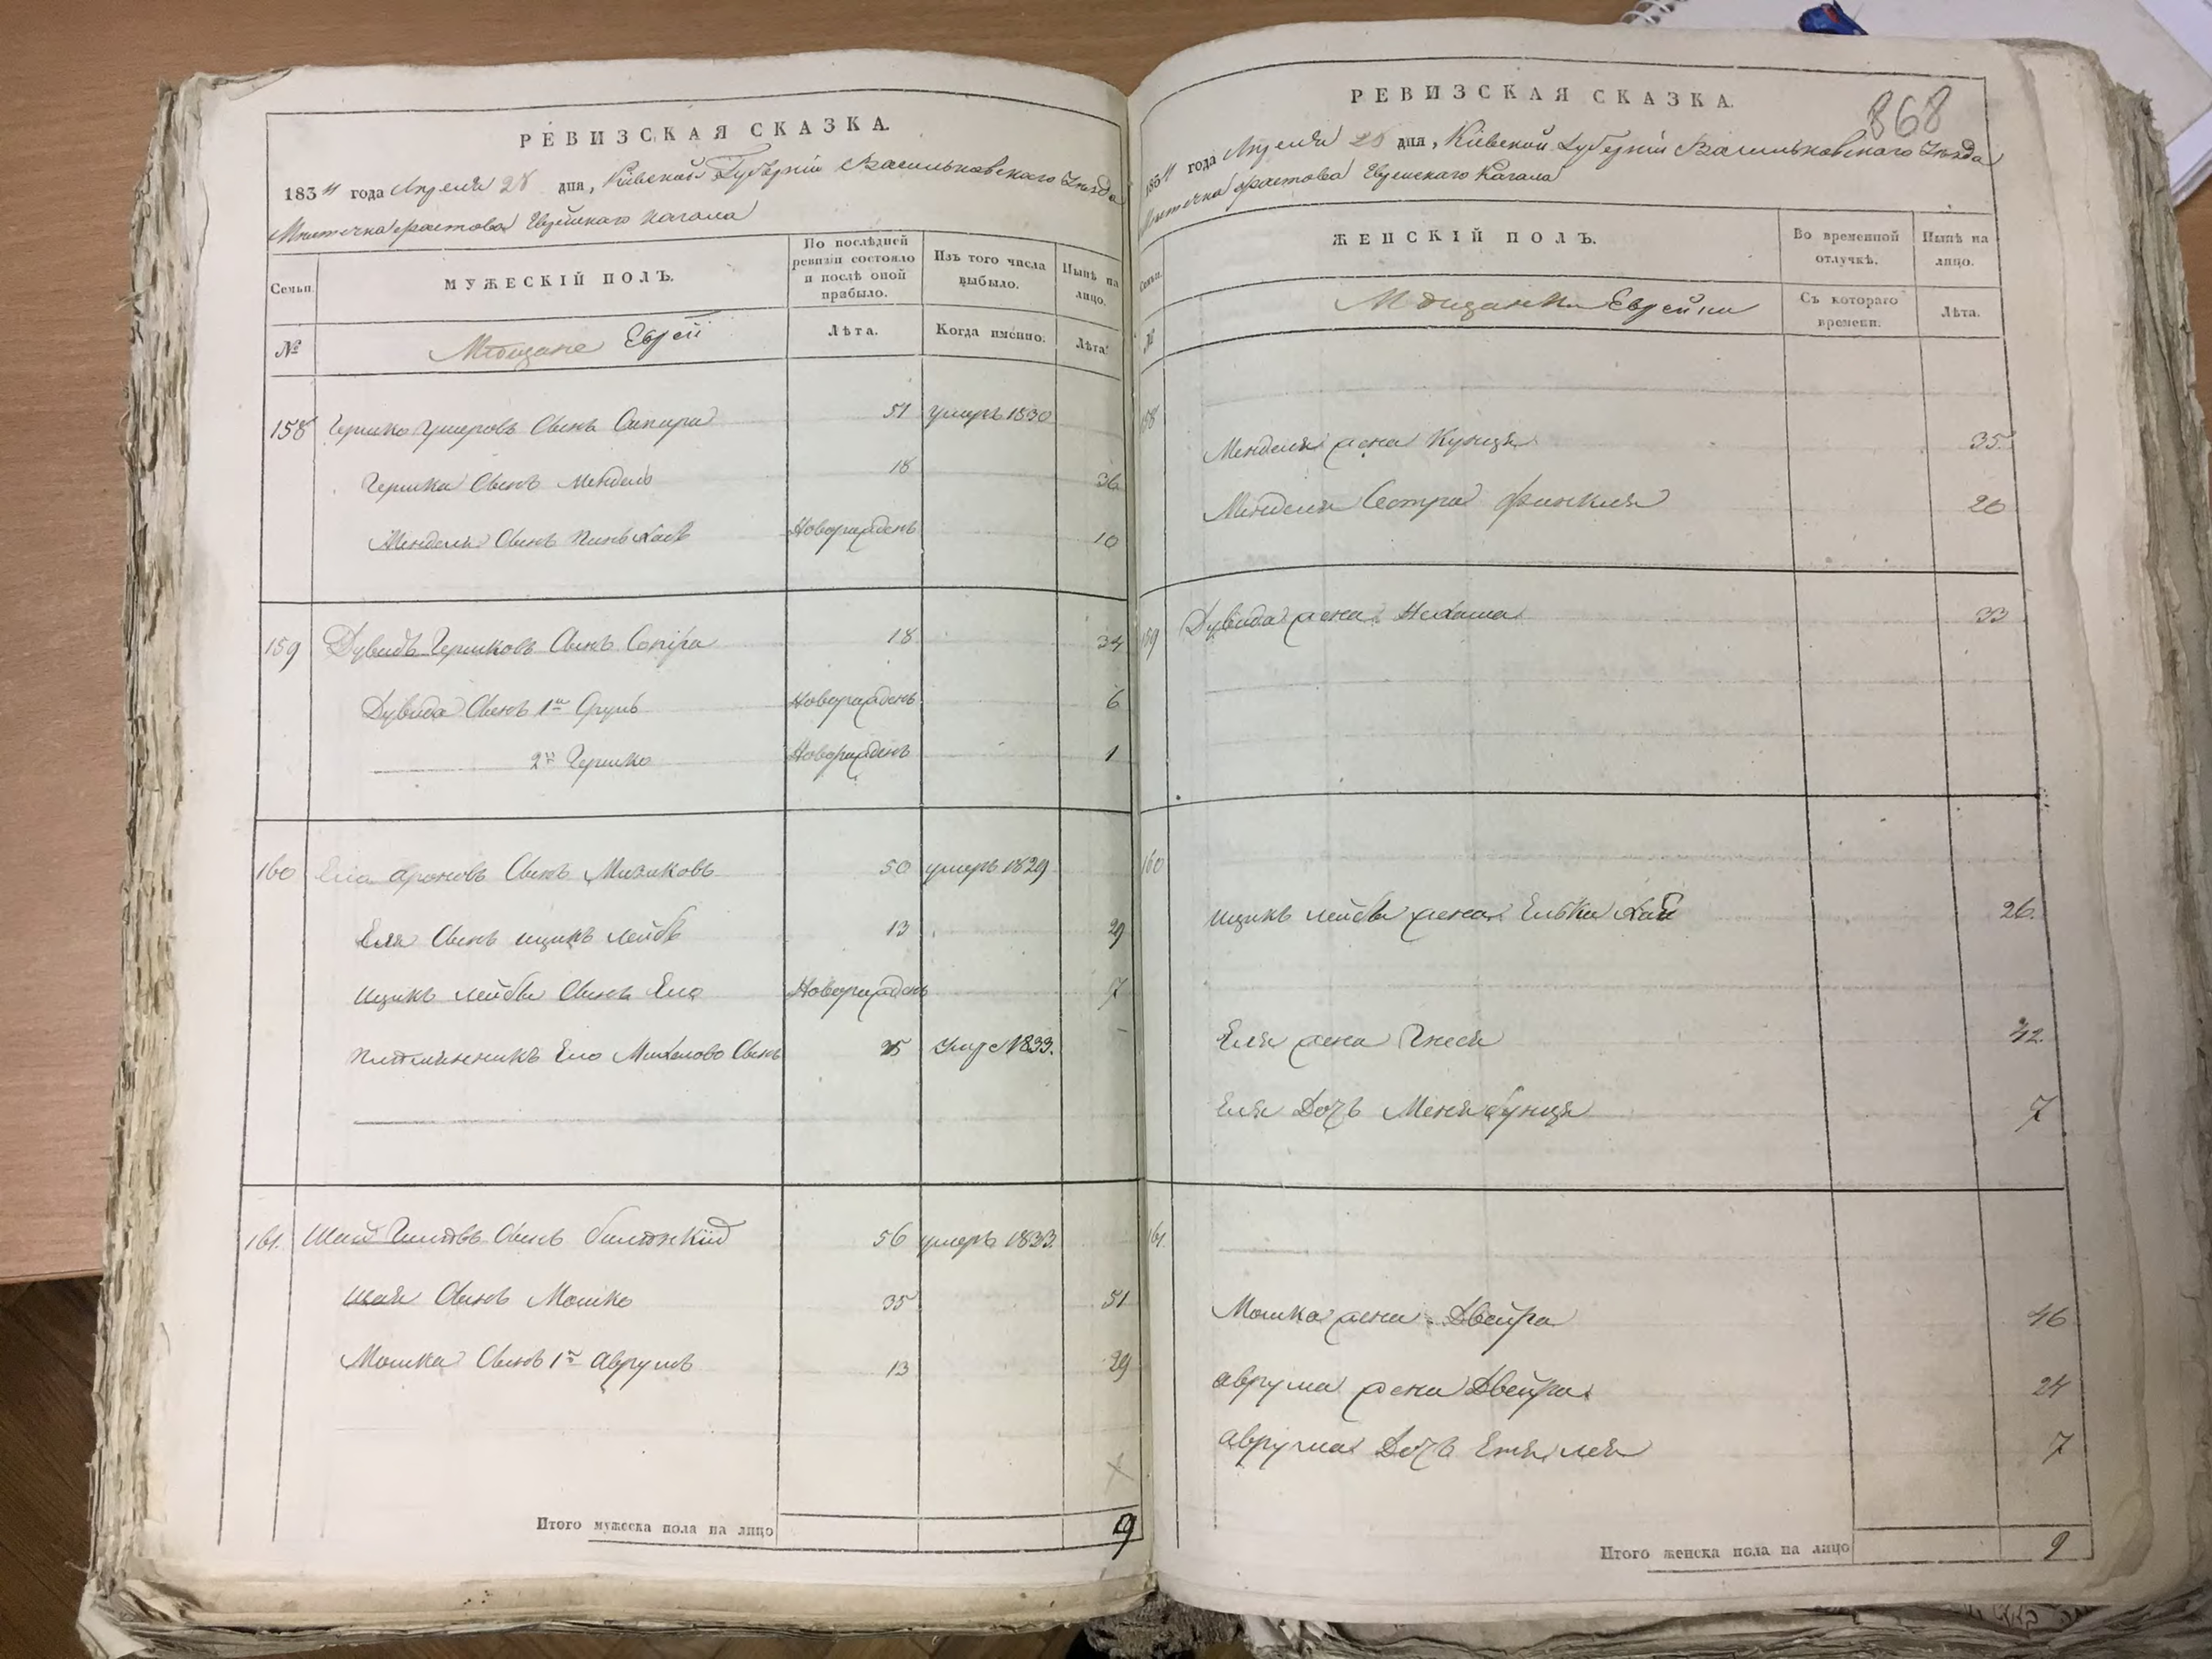 РЕВИЗСКАЯ СКАЗКА.
1834 года Апреля 28 дня, Кіевской Губерніи Васильковскаго Уезда
Местечка Фастова Еврейскаго Кагала
Семьи.
МУЖЕСКІЙ ПОЛЪ.
По послѣдней ревизіи состояло и послѣ оной прибыло.
Изъ того числа выбыло.
Нынѣ на лицо.
№
Мѣщане Евреи
Лѣта.
Когда именно.
Лѣта.
158 Гершко Умеровъ Сынъ Сапира 51 умеръ 1830
Гершка Сынъ Мендель 18 36
Менделя Сынъ Пинькасъ Новорожденъ 10
159 Дувидъ Гершковъ Сынъ Сапира 18 34
Дувида Сынъ 1й Сруль Новорожденъ 6
2й Гершко Новорожденъ 1
160 Ель Ароновъ Сынъ 50 умеръ 1829
Еля Сынъ Ицикъ Лейбъ 13 29
Ицикъ Лейбы Сынъ Ель Новорожденъ 7
Племянникъ Ель Михелово Сынъ 25 1833.
161. Шая Сынъ 56 умеръ 1833.
Шая Сынъ Мошко 35 51
Мошка Сынъ 1й Аврумъ 13 29
Итого мужеска пола на лицо 9
РЕВИЗСКАЯ СКАЗКА.
868
1834 года Апреля 28 дня, Кіевской Губерніи Васильковскаго Уезда
Местечка Фастова Еврейскаго Кагала
Семьи.
ЖЕНСКІЙ ПОЛЪ.
Во временной отлучкѣ.
Нынѣ на лицо.
№
Мѣщанки Еврейки
Съ котораго времени.
Лѣта.
158
Менделя жена Куня 35
Менделя Сестра Финкля 20
159 Дувида жена Нехама 33
160
Ицикъ Лейбы жена Елька Хая 26.
Еля жена Гнеся 42.
Еля Дочь Меня 7
161.
Мошка жена Двейра 46
Аврума жена Двейра 24
Аврума Дочь Етя Лея 7
Итого женска пола на лицо 9